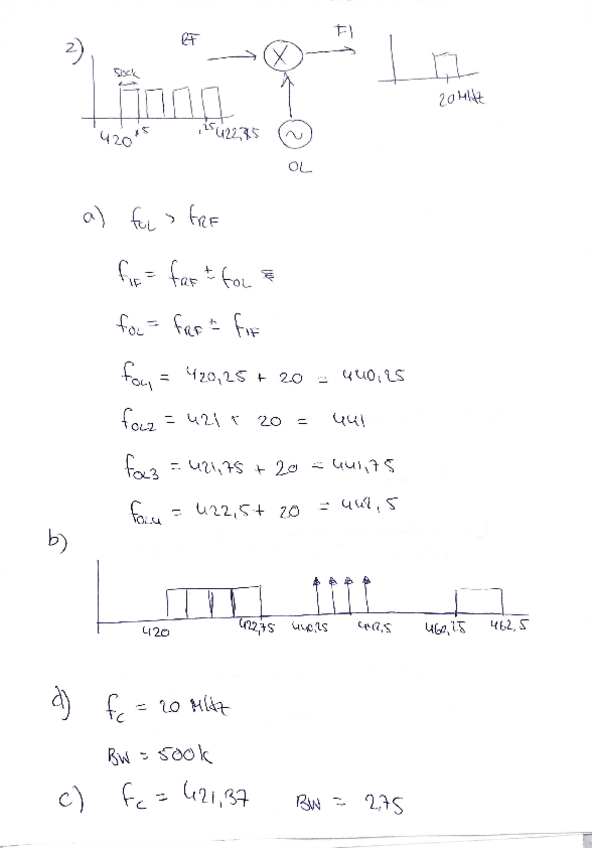 2)
RF
FI
500k
20 MHz
420 ,5 ,25 422,75
OL
a) fOL > fRF
fIF = fRF ± fOL =
fOL = fRF ± fIF
fOL1 = 420,25 + 20 = 440,25
fOL2 = 421 + 20 = 441
fOL3 = 421,75 + 20 = 441,75
fOL4 = 422,5 + 20 = 442,5
b)
420 422,75 440,25 442,5 460,25 462,5
d) fc = 20 MHz
BW = 500k
c) fc = 421,37 BW = 2,75